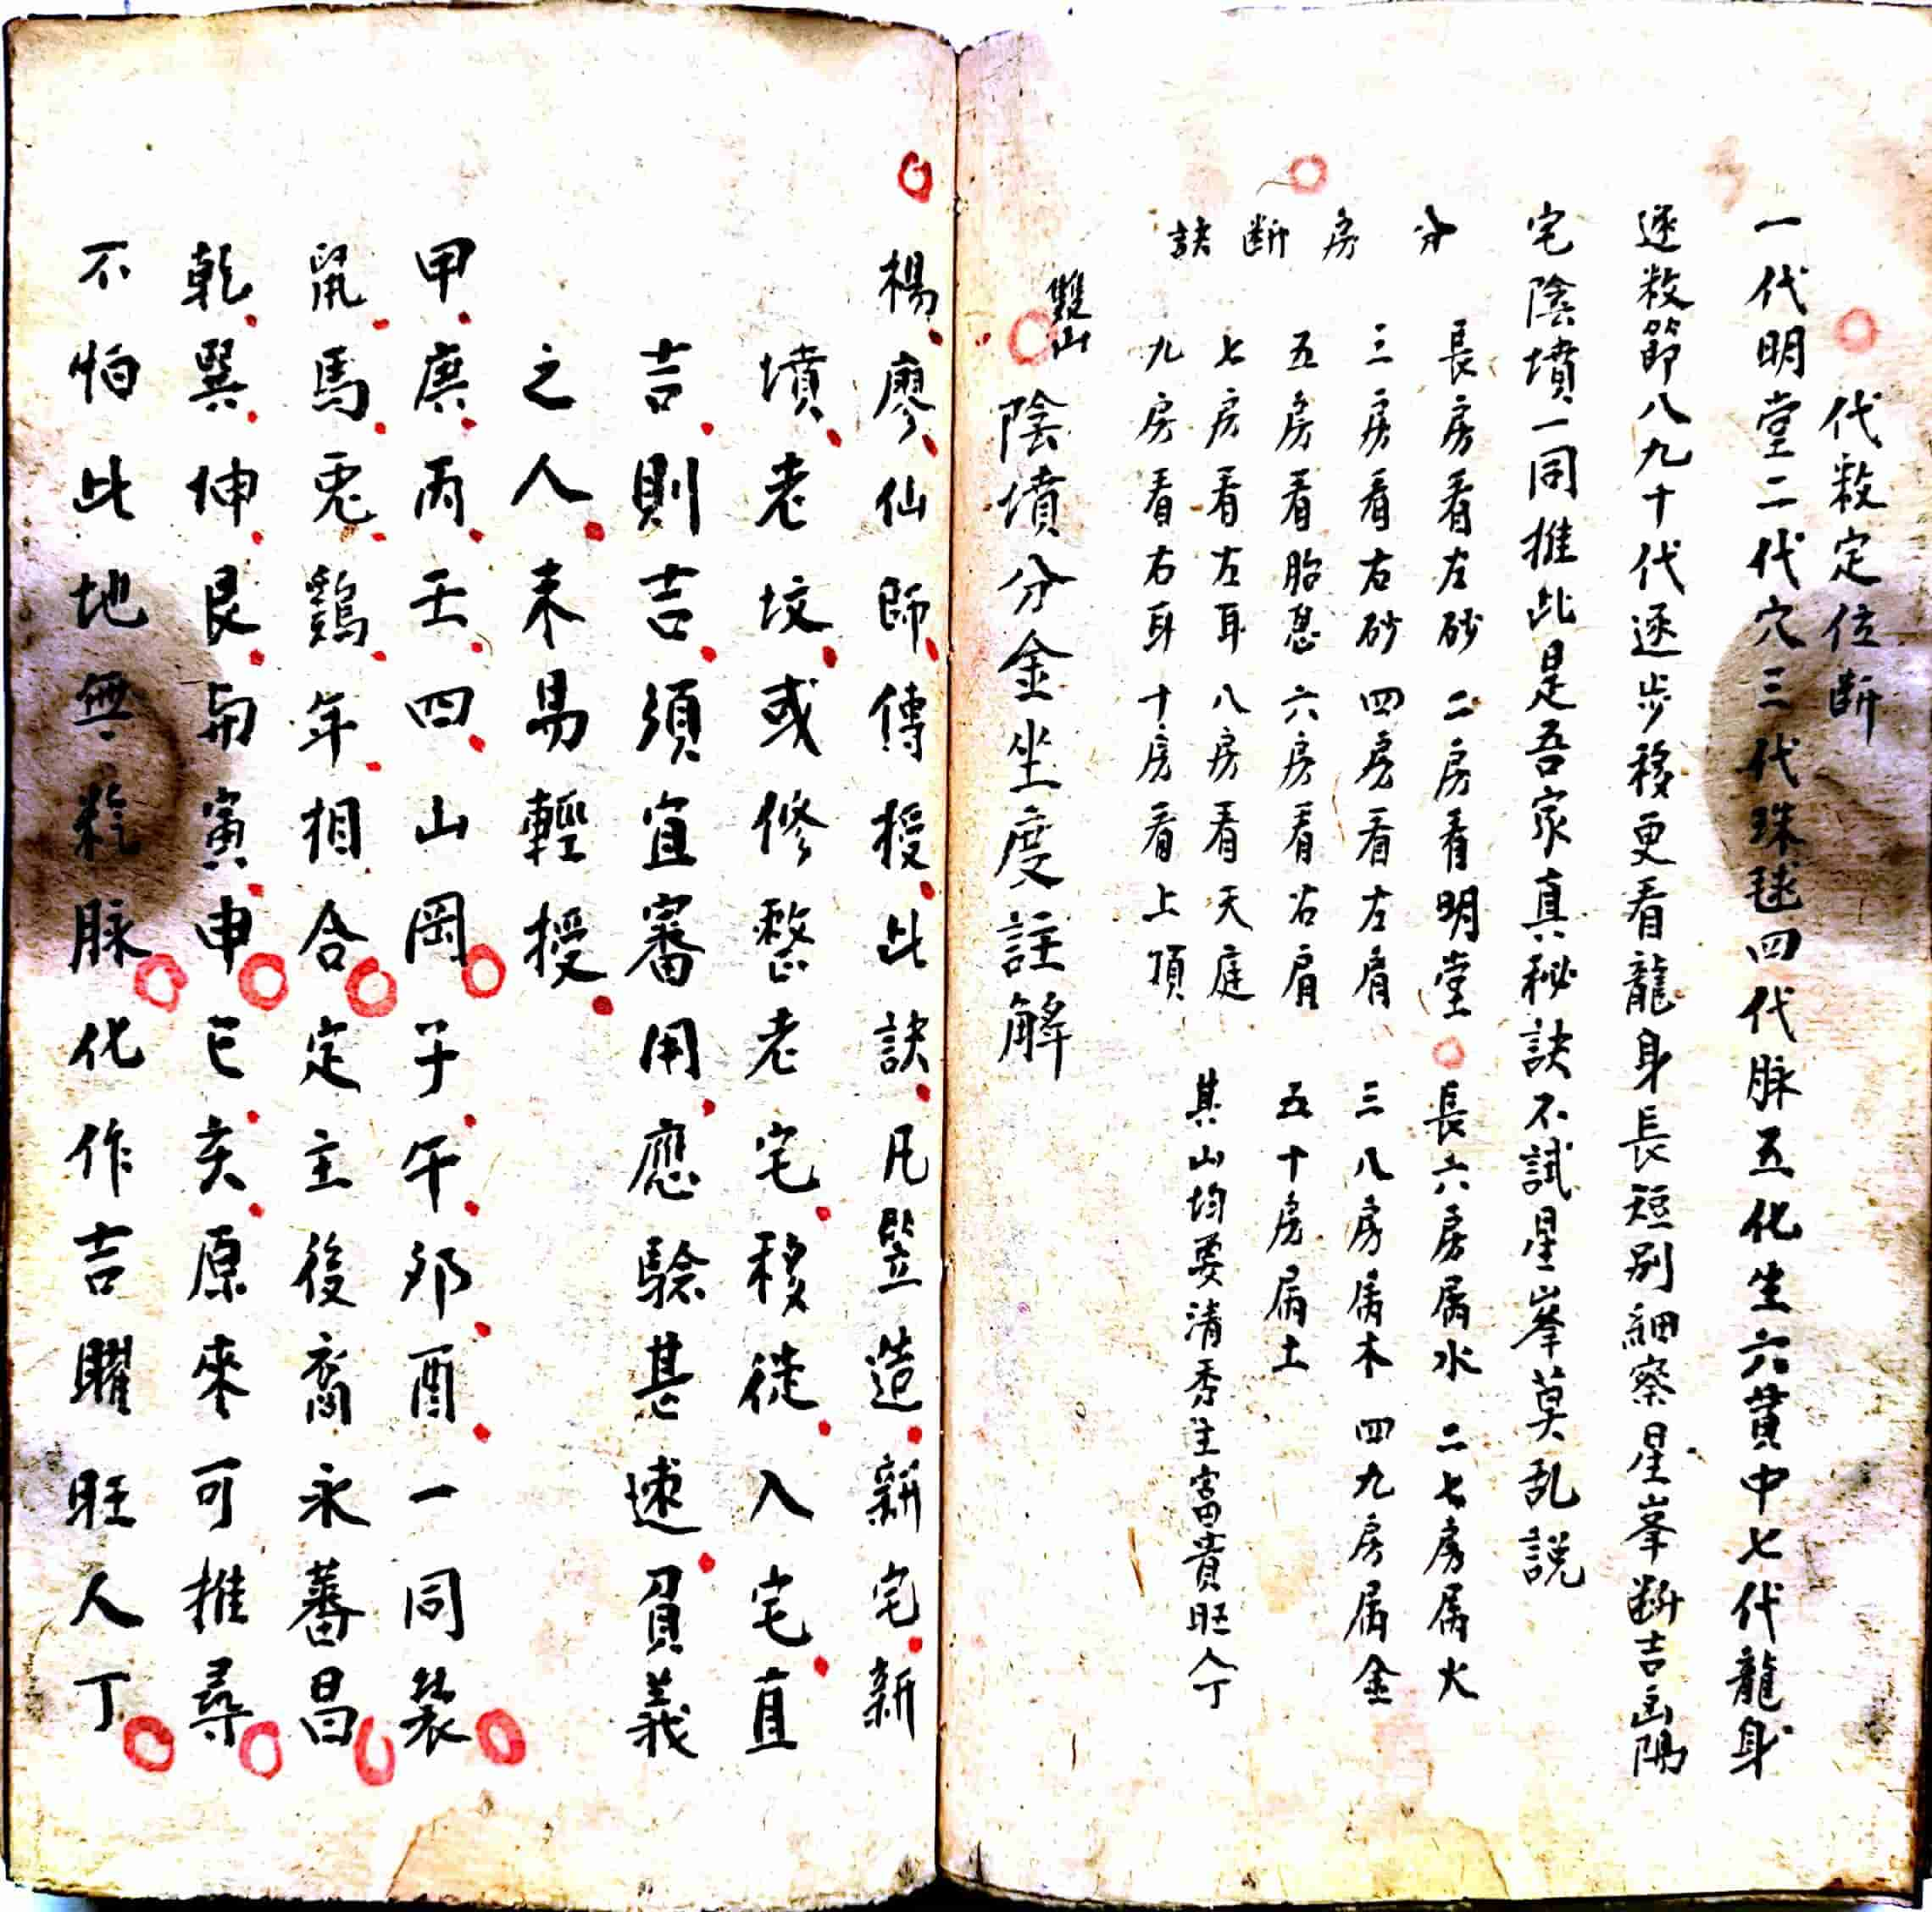 代数定位断
一代明堂二代穴三代珠毬四代脉五化生六貫中七代龍身
逐数節八九十代逐步移更看龍身長短別細察星峯断吉凶陽
宅陰墳一同推此是吾家真秘訣不試星峯莫乱説
分房断訣
長房看左砂 二房看明堂 長六房属水 二七房属火
三房看右砂 四房看左肩 三八房属木 四九房属金
五房看胎息 六房看右肩 五十房属土
七房看左耳 八房看天庭 其山均要清秀主富貴旺人丁
九房看右耳 十房看上頂
雙山
陰墳分金坐度註解
楊廖仙師傳授此訣凡竪造新宅新
墳老坟或修整老宅移徙入宅直
吉則吉須宜審用應驗甚速負義
之人未易輕授
甲庚丙壬四山岡子午卯酉一同裝
鼠馬兎鷄年相合定主後裔永蕃昌
乾巽伸艮与寅申巳亥原來可推尋
不怕此地無龍脉化作吉曜旺人丁